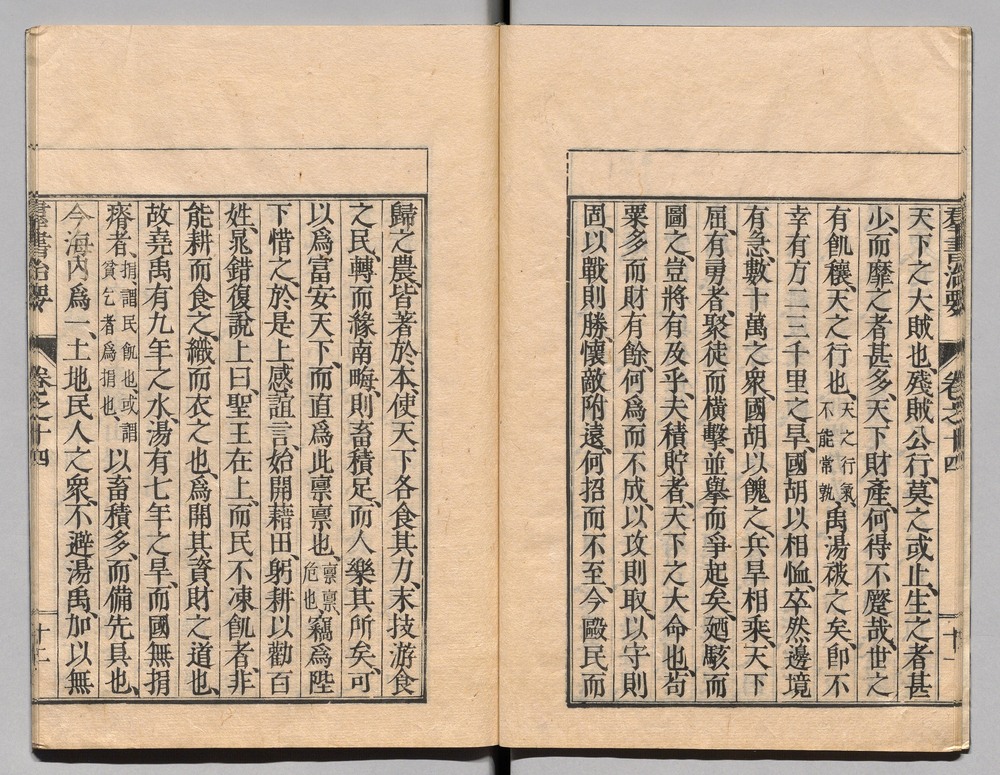 羣書治要 卷之十四 十一
天下之大賊也、殘賊公行、莫之或止、生之者甚
少、而靡之者甚多、天下財產、何得不蹷哉、世之
有飢穰、天之行也、天之行氣、不能常孰、禹湯被之矣、卽不
幸有方二三千里之旱、國胡以相恤、卒然邊境
有急、數十萬之衆、國胡以餽之、兵旱相乘、天下
屈、有勇者、聚徒而橫擊、並擧而爭起矣、廼駭而
圖之、豈將有及乎、夫積貯者、天下之大命也、苟
粟多而財有餘、何爲而不成、以攻則取、以守則
固、以戰則勝、懷敵附遠、何招而不至、今毆民而
歸之農、皆著於本、使天下各食其力、末技游食
之民、轉而緣南畮、則畜積足、而人樂其所矣、可
以爲富安天下、而直爲此稟稟也、稟稟、危也、竊爲陛
下惜之、於是上感誼言、始開藉田、躬耕以勸百
姓、晁錯復說上曰、聖王在上、而民不凍飢者、非
能耕而食之、織而衣之也、爲開其資財之道也、
故堯禹有九年之水、湯有七年之旱、而國無捐
瘠者、捐、謂民飢也、或謂貧乞者爲捐也、以畜積多、而備先具也、
今海內爲一、土地民人之衆、不避湯禹、加以無
羣書治要 卷之十四 十二